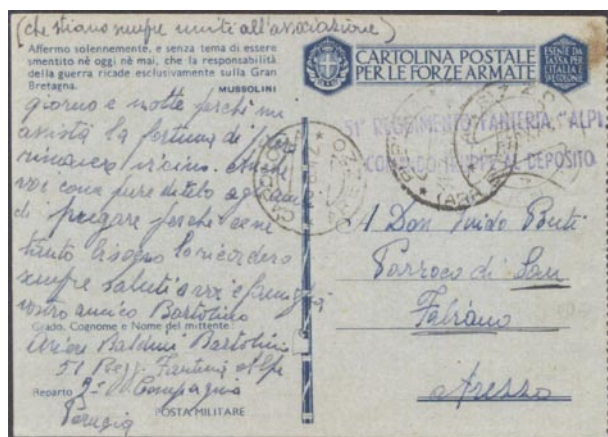 (che stiano sempre uniti all'associazione)
Affermo solennemente, e senza tema di essere
smentito nè oggi nè mai, che la responsabilità
della guerra ricade esclusivamente sulla Gran
Bretagna.
MUSSOLINI
giorno e notte perchè mi
assista la fortuna di poter
rimanere vicino. anche
voi cona pure ditelo
di pregare perchè
tanto bisogno ricorderò
sempre saluti a voi e famiglia
vostro amico Bartolino
Grado, Cognome e Nome del mittente:
Baldini Bartolini
51 Regg. Fanteria Alpi
Reparto 2ª Compagnia
Perugia
POSTA MILITARE
CARTOLINA POSTALE
PER LE FORZE ARMATE
ESENTE DA
TASSA PER
L'ITALIA E
SUE COLONIE
51° REGGIMENTO FANTERIA "ALPI"
COMANDO TRUPPE AL DEPOSITO
AREZZO
A Don Guido
Parroco di San
Fabiano
Arezzo